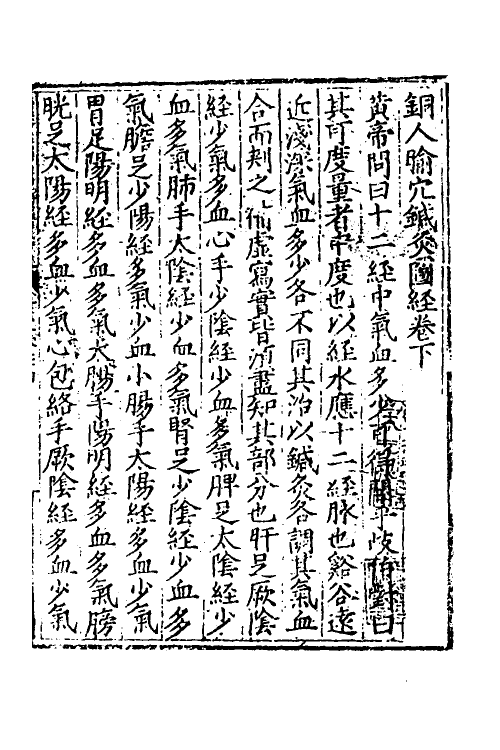 銅人腧穴鍼灸圖經卷下
黃帝問曰十二經中氣血多少可得聞乎岐伯對曰
其可度量者中度也以經水應十二經脉也谿谷遠
近淺深氣血多少各不同其治以鍼灸各調其氣血
合而刾之補虛寫實皆須盡知其部分也肝足厥陰
經少氣多血心手少陰經少血多氣脾足太陰經少
血多氣肺手太陰經少血多氣腎足少陰經少血多
氣膽足少陽經多氣少血小腸手太陽經多血少氣
胃足陽明經多血多氣大腸手陽明經多血多氣膀
胱足太陽經多血少氣心包絡手厥陰經多血少氣